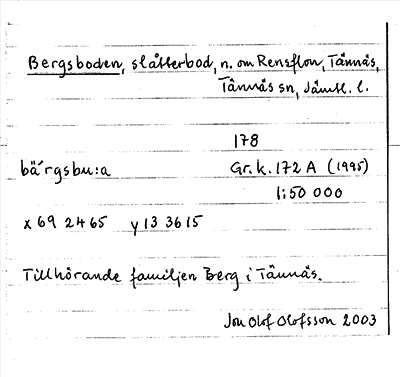 Bergsboden, slåtterbod, n. om Rensflon, Tännäs,
Tännäs sn, Jämtl. l.
178
bä́rgsbu:a Gr.k. 172 A (1995)
1:50 000
x 69 2465 y 13 3615
Tillhörande familjen Berg i Tännäs.
Jon Olof Olofsson 2003